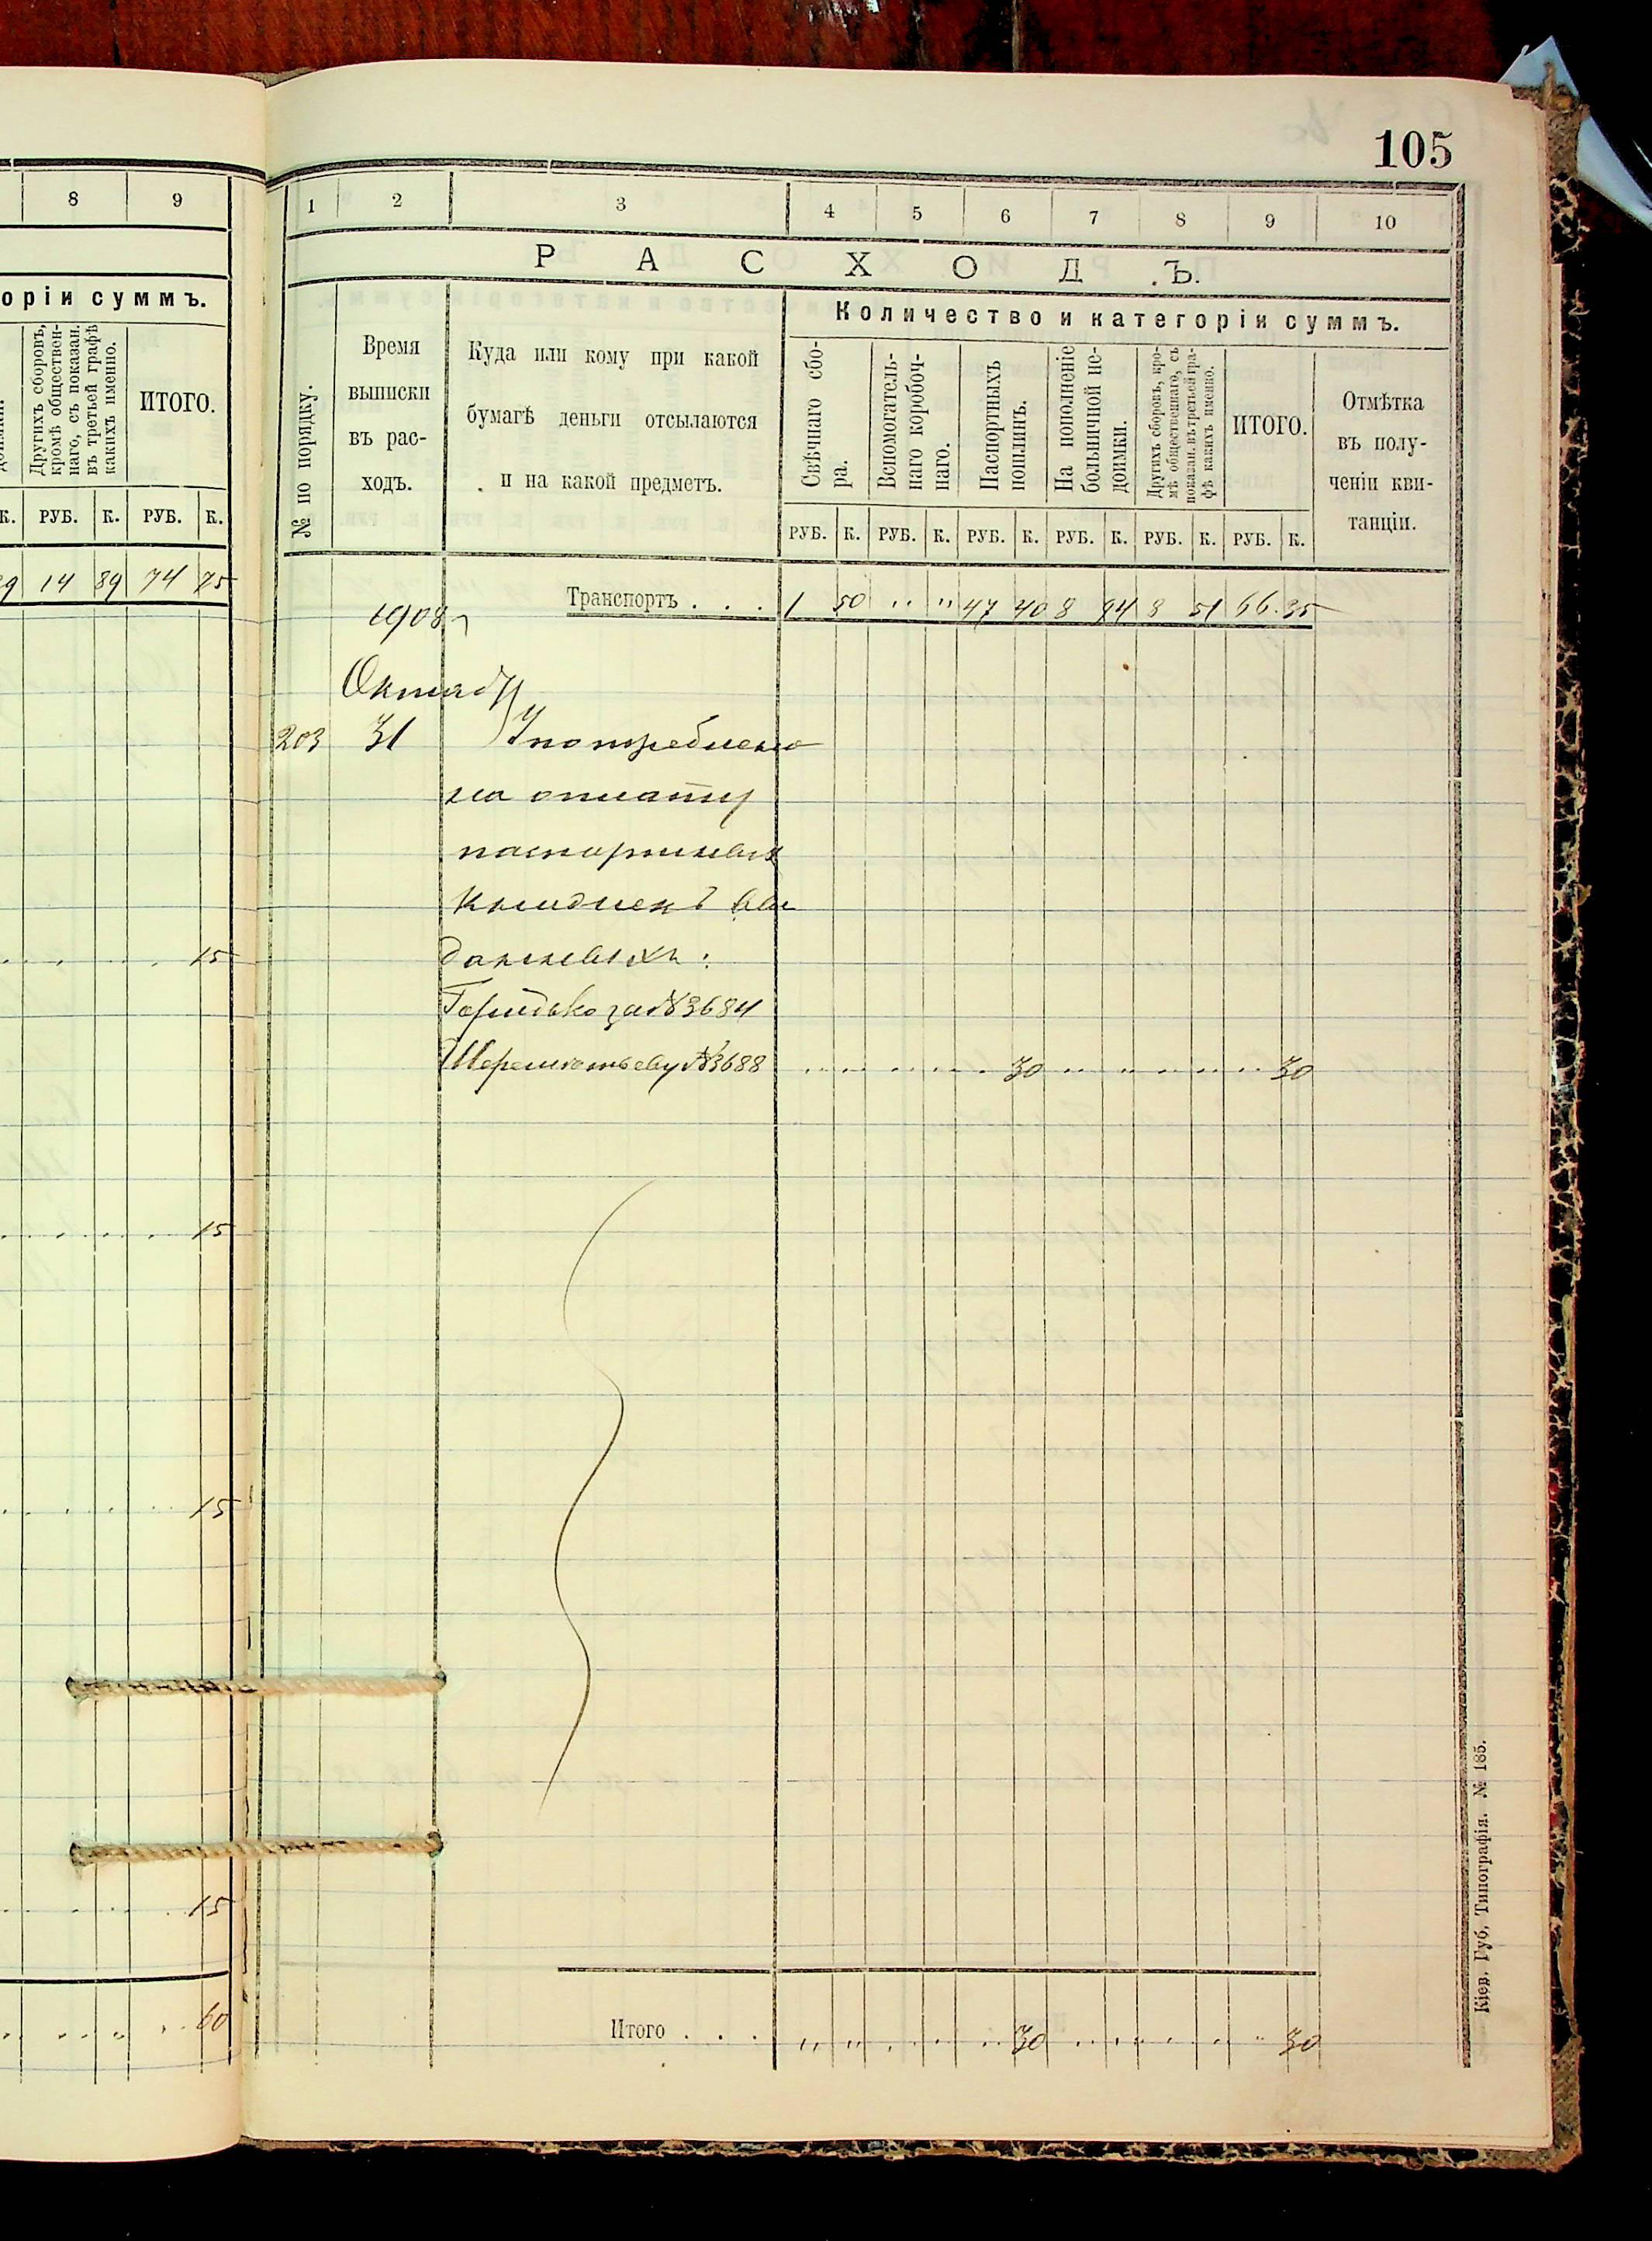 105
8 9
оріи суммъ.
Другихъ сборовъ,
кромѣ обществен-
наго, съ показан.
въ третьей графѣ
какихъ именно.
ИТОГО.
К. РУБ. К. РУБ. К.
14 89 74 75
15
15
15
15
60
1 2 3 4 5 6 7 8 9 10
РАСХОДЪ.
№ по порядку.
Время
выписки
въ рас-
ходъ.
Куда или кому при какой
бумагѣ деньги отсылаются
и на какой предметъ.
Количество и категоріи суммъ.
Свѣчнаго сбо-
ра.
Вспомогатель-
наго коробоч-
наго.
Паспортныхъ
пошлинъ.
На пополненіе
больничной не-
доимки.
Другихъ сборовъ, кро-
мѣ общественнаго, съ
показан. въ третьей гра-
фѣ какихъ именно.
ИТОГО.
Отмѣтка
въ полу-
ченіи кви-
танціи.
РУБ. К. РУБ. К. РУБ. К. РУБ. К. РУБ. К. РУБ. К.
Транспортъ . . . 1 50 " " 47 40 8 94 8 51 66 35
1908 г
Октябр
203 31 Употреблено
на оплату
паспортных
книжекъ вы
данныхъ:
за № 3684
Шереметьеву № 3688 30 30
Итого . . . 30 30
Кіев. Губ. Типографія. № 185.